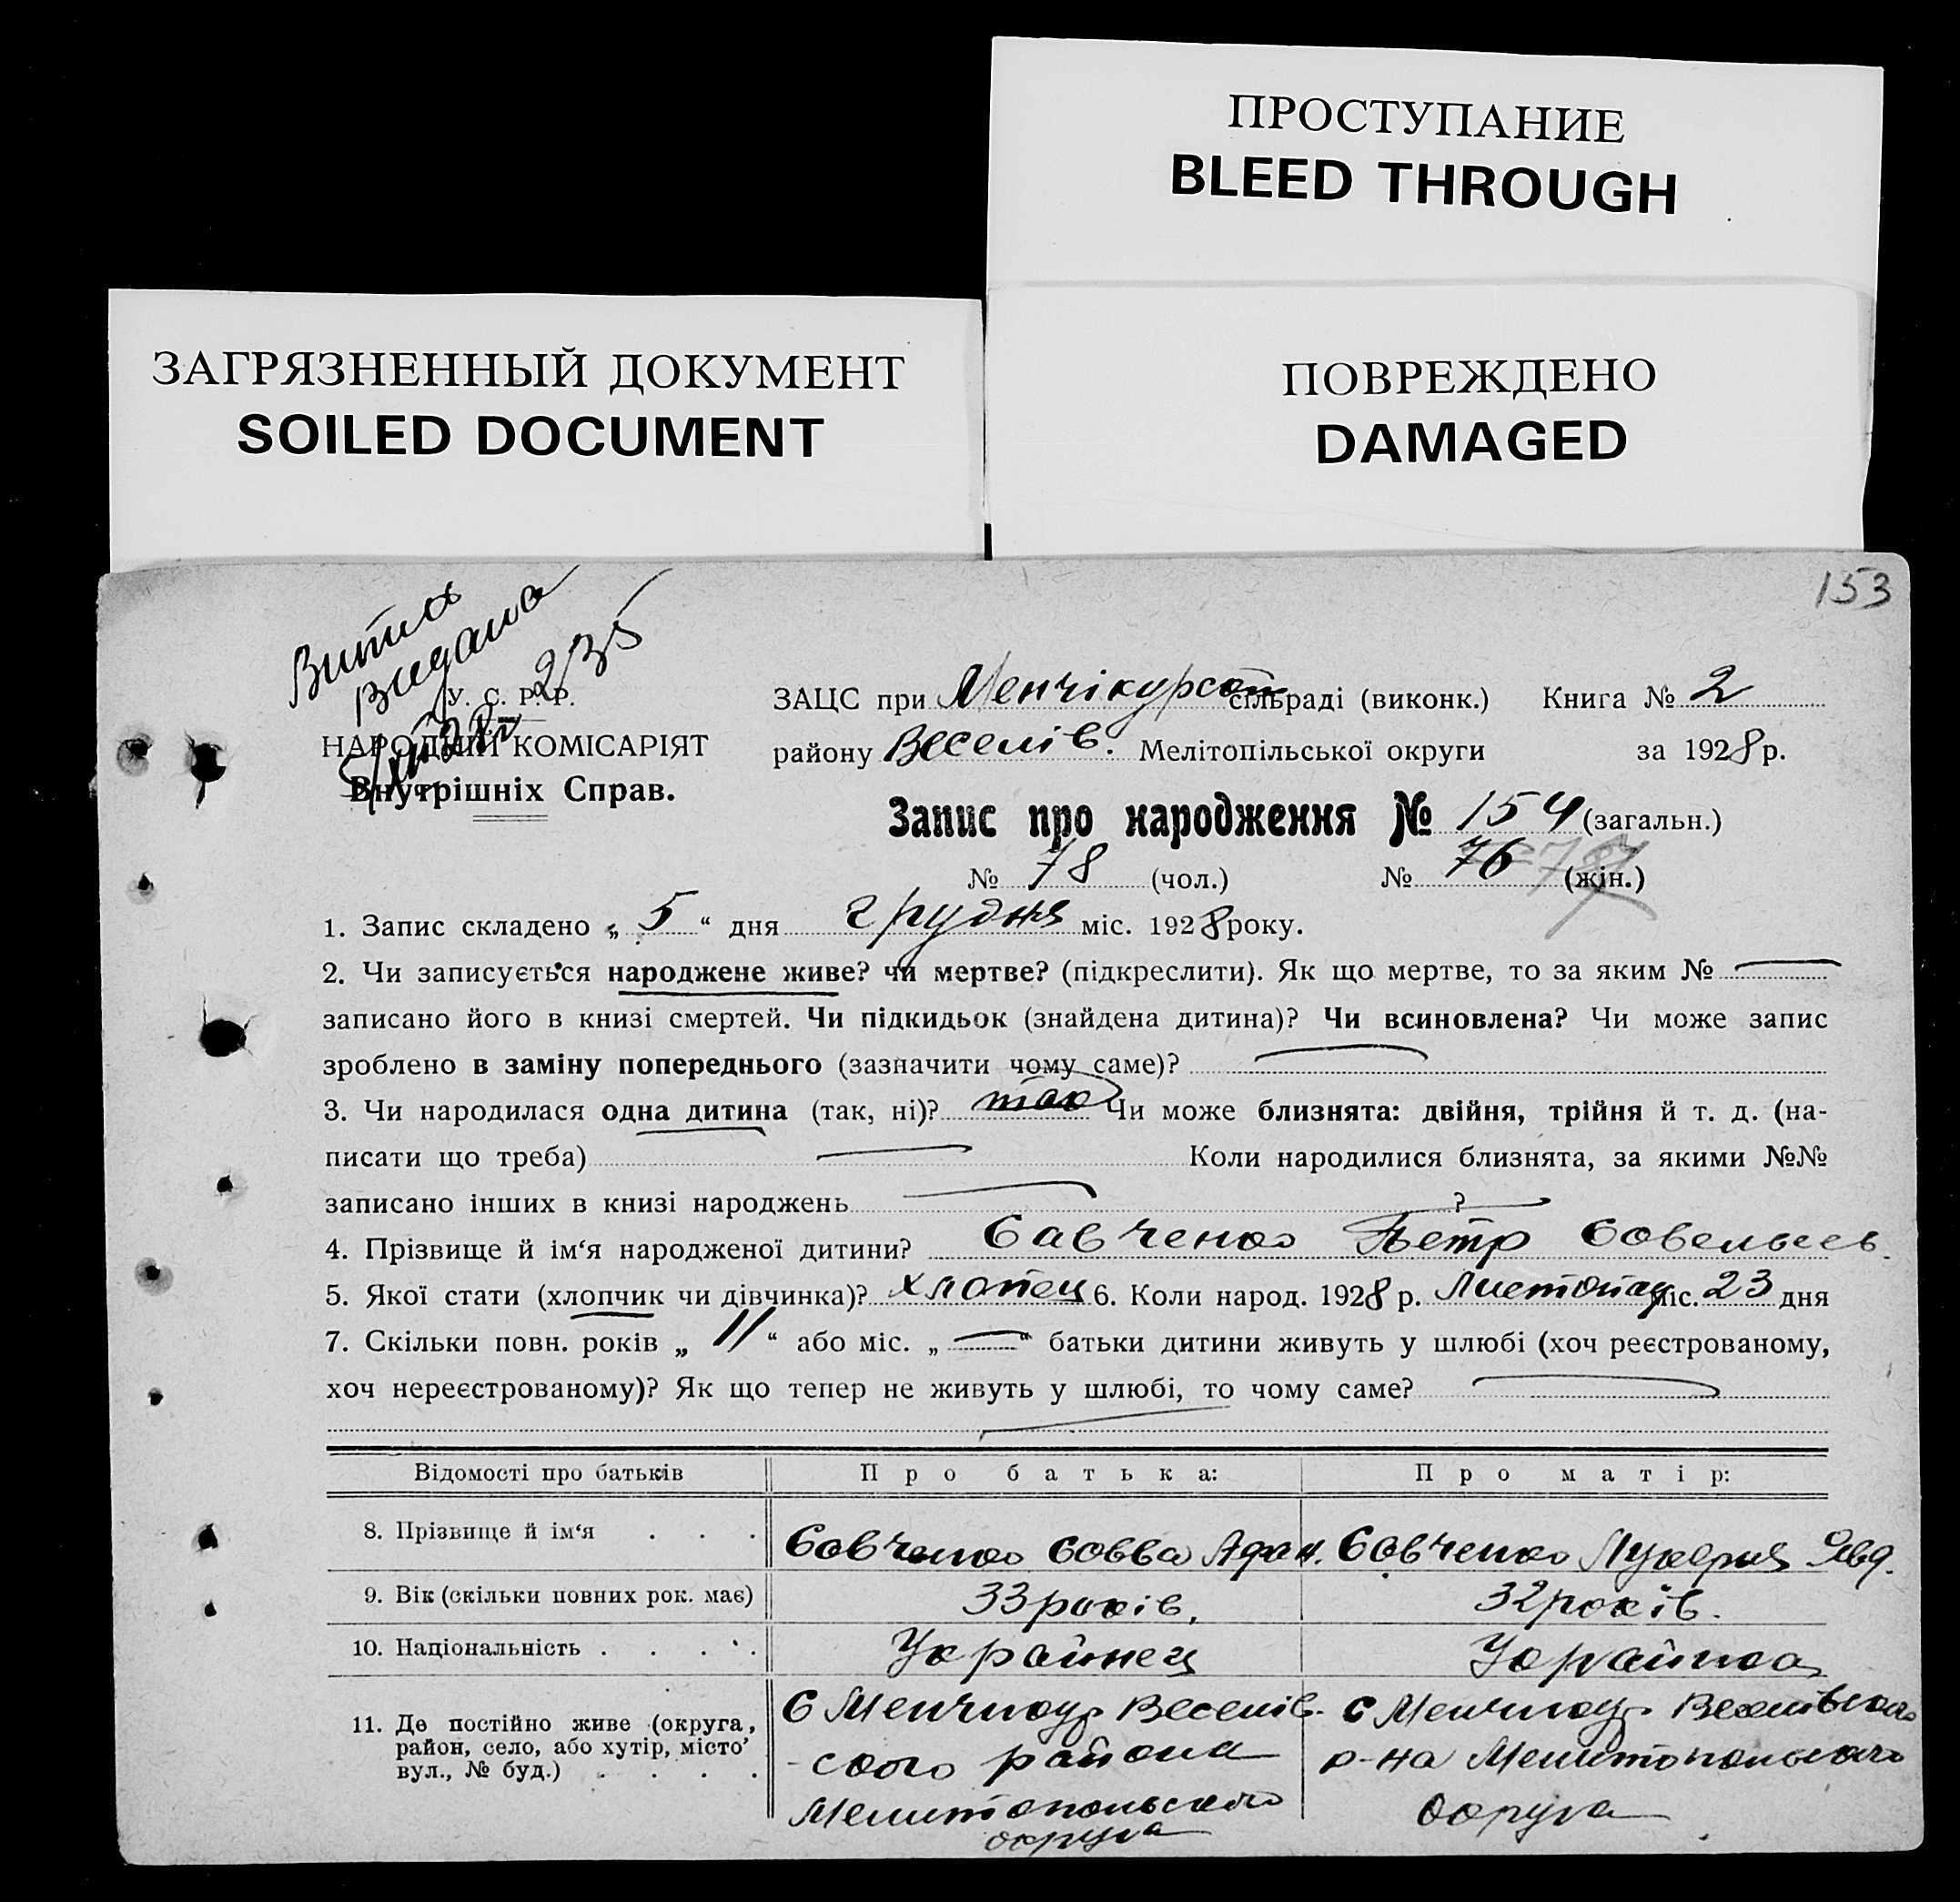 ПРОСТУПАНИЕ
BLEED THROUGH
ЗАГРЯЗНЕННЫЙ ДОКУМЕНТ
SOILED DOCUMENT
ПОВРЕЖДЕНО
DAMAGED
153
Витяг
Видана
235
У. С. Р. Р.
НАРОДНІЙ КОМІСАРІЯТ
Внутрішніх Справ.
ЗАЦС при Менчікурской сільраді (виконк.) Книга № 2
району Веселів. Мелітопільської округи за 1928 р.
Запис про народження № 154 (загальн.)
№ 78 (чол.) № 76 (жін.)
1. Запис складено „ 5 “ дня грудня міс. 1928 року.
2. Чи записується народжене живе? чи мертве? (підкреслити). Як що мертве, то за яким № —
записано його в книзі смертей. Чи підкидьок (знайдена дитина)? Чи всиновлена? Чи може запис
зроблено в заміну попереднього (зазначити чому саме)? —
3. Чи народилася одна дитина (так, ні)? так Чи може близнята: двійня, трійня й т. д. (на-
писати що треба) — Коли народилися близнята, за якими №№
записано інших в книзі народжень — ? —
4. Прізвище й ім‘я народженої дитини? Савченко Петр Савельев.
5. Якої стати (хлопчик чи дівчинка)? хлопец 6. Коли народ. 1928 р. Листопад міс. 23 дня
7. Скільки повн. років „ 11 “ або міс. „ — “ батьки дитини живуть у шлюбі (хоч реєстрованому,
хоч нереєстрованому)? Як що тепер не живуть у шлюбі, то чому саме? —
Відомості про батьків Про батька: Про матір:
8. Прізвище й ім‘я . . . Савченко Савва Афан. Савченко Лукерия Явд.
9. Вік (скільки повних рок. має) 33 років. 32 років.
10. Національність . . . . Украйнец Украйнка
11. Де постійно живе (округа, район, село, або хутір, місто, вул., № буд.) . . . .
С Менчикур Веселів-
ского района
Мелитопольского
округа
С Менчикур Веселівского
р-на Мелитопольского
округа